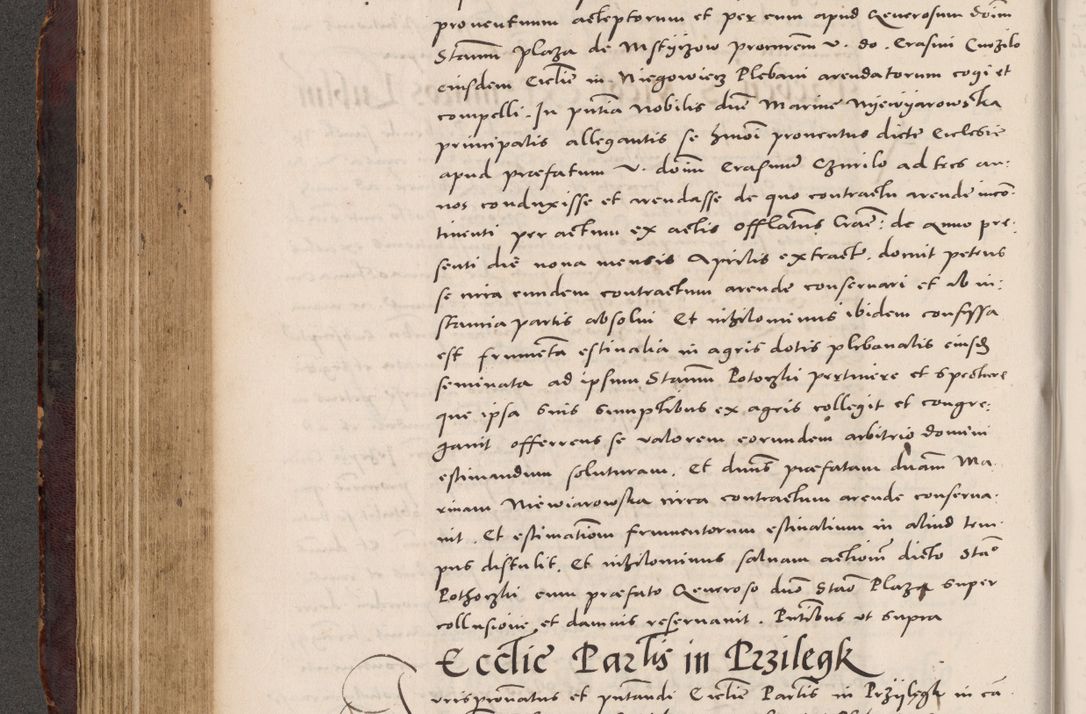 proventuum acleptorum et per eum apud Generosum dom̄
Stanm̄ Plaza de Mstÿzow promrem̄ v. do. Erasmi Cwrzilo
eiusdem Ecclīe in Niegowiercz Plebani arendatorum cogi et
compelli. In pn̄tia Nobilis dn̄e Marine Nÿewÿarowska
principalis allegantis se hmōi proventus dicte Ecclesie
apud præfatum v. doīm Erasmum Czurilo ad tres an:
nos conduxisse et arendasse de quo contractu arende incō:
tinenti per actum ex actis officÿ Crac̄: de Anno pre:
senti die nona mensis Aprilis extractū. domit petens
se circa eundem contractum arende conservari et ab in:
stancia partis absolvi Et nihilominus ibidem confessa
est frumēta estivalia in agris dotis plebanalis eiusdē
seminata ad ipsum Stanm̄ Potoczki pertinere et spectare
que ipsa suis sumptibus ex agris collegit et congre:
gavit offerens se valorem eorundem arbitrio domini
estimandum soluturam. Et dn̄us præfatam dnam̄ Ma
rinam Niewiarowska circa contractum arende conserva:
vit. Et estimationē frumentorum estivalium in aliud tem:
pus distulit. Et nihilominus salvam actionē dicto Stāo
Pothoczki cum præfato Generoso dn̄o Stāo Plaza super
collusione et damnis reservavit. Pntībus ut supra
Ecclīe Parlīs in Przilegk
Jurispronatus et putandi Ecclīe Parlīs in Przÿlegk in cā